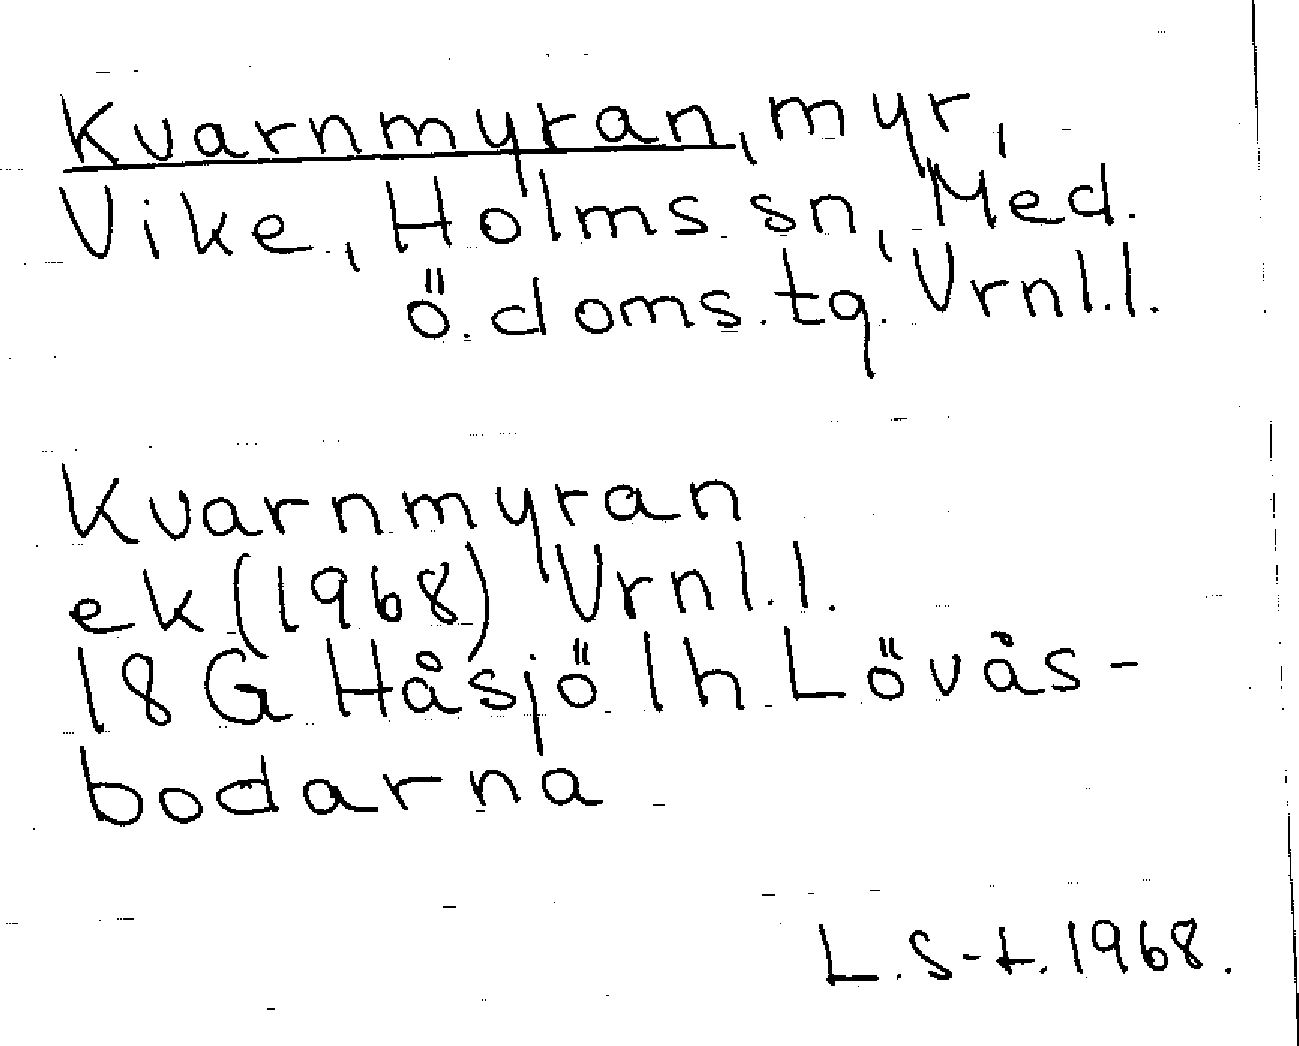 Kvarnmyran, myr,
Vike, Holms sn, Med.
ö. doms. tg. Vrnl.l.
Kvarnmyran
ek (1968) Vrnl.l.
18 G Håsjö 1h Lövås-
bodarna
L. S-t. 1968.